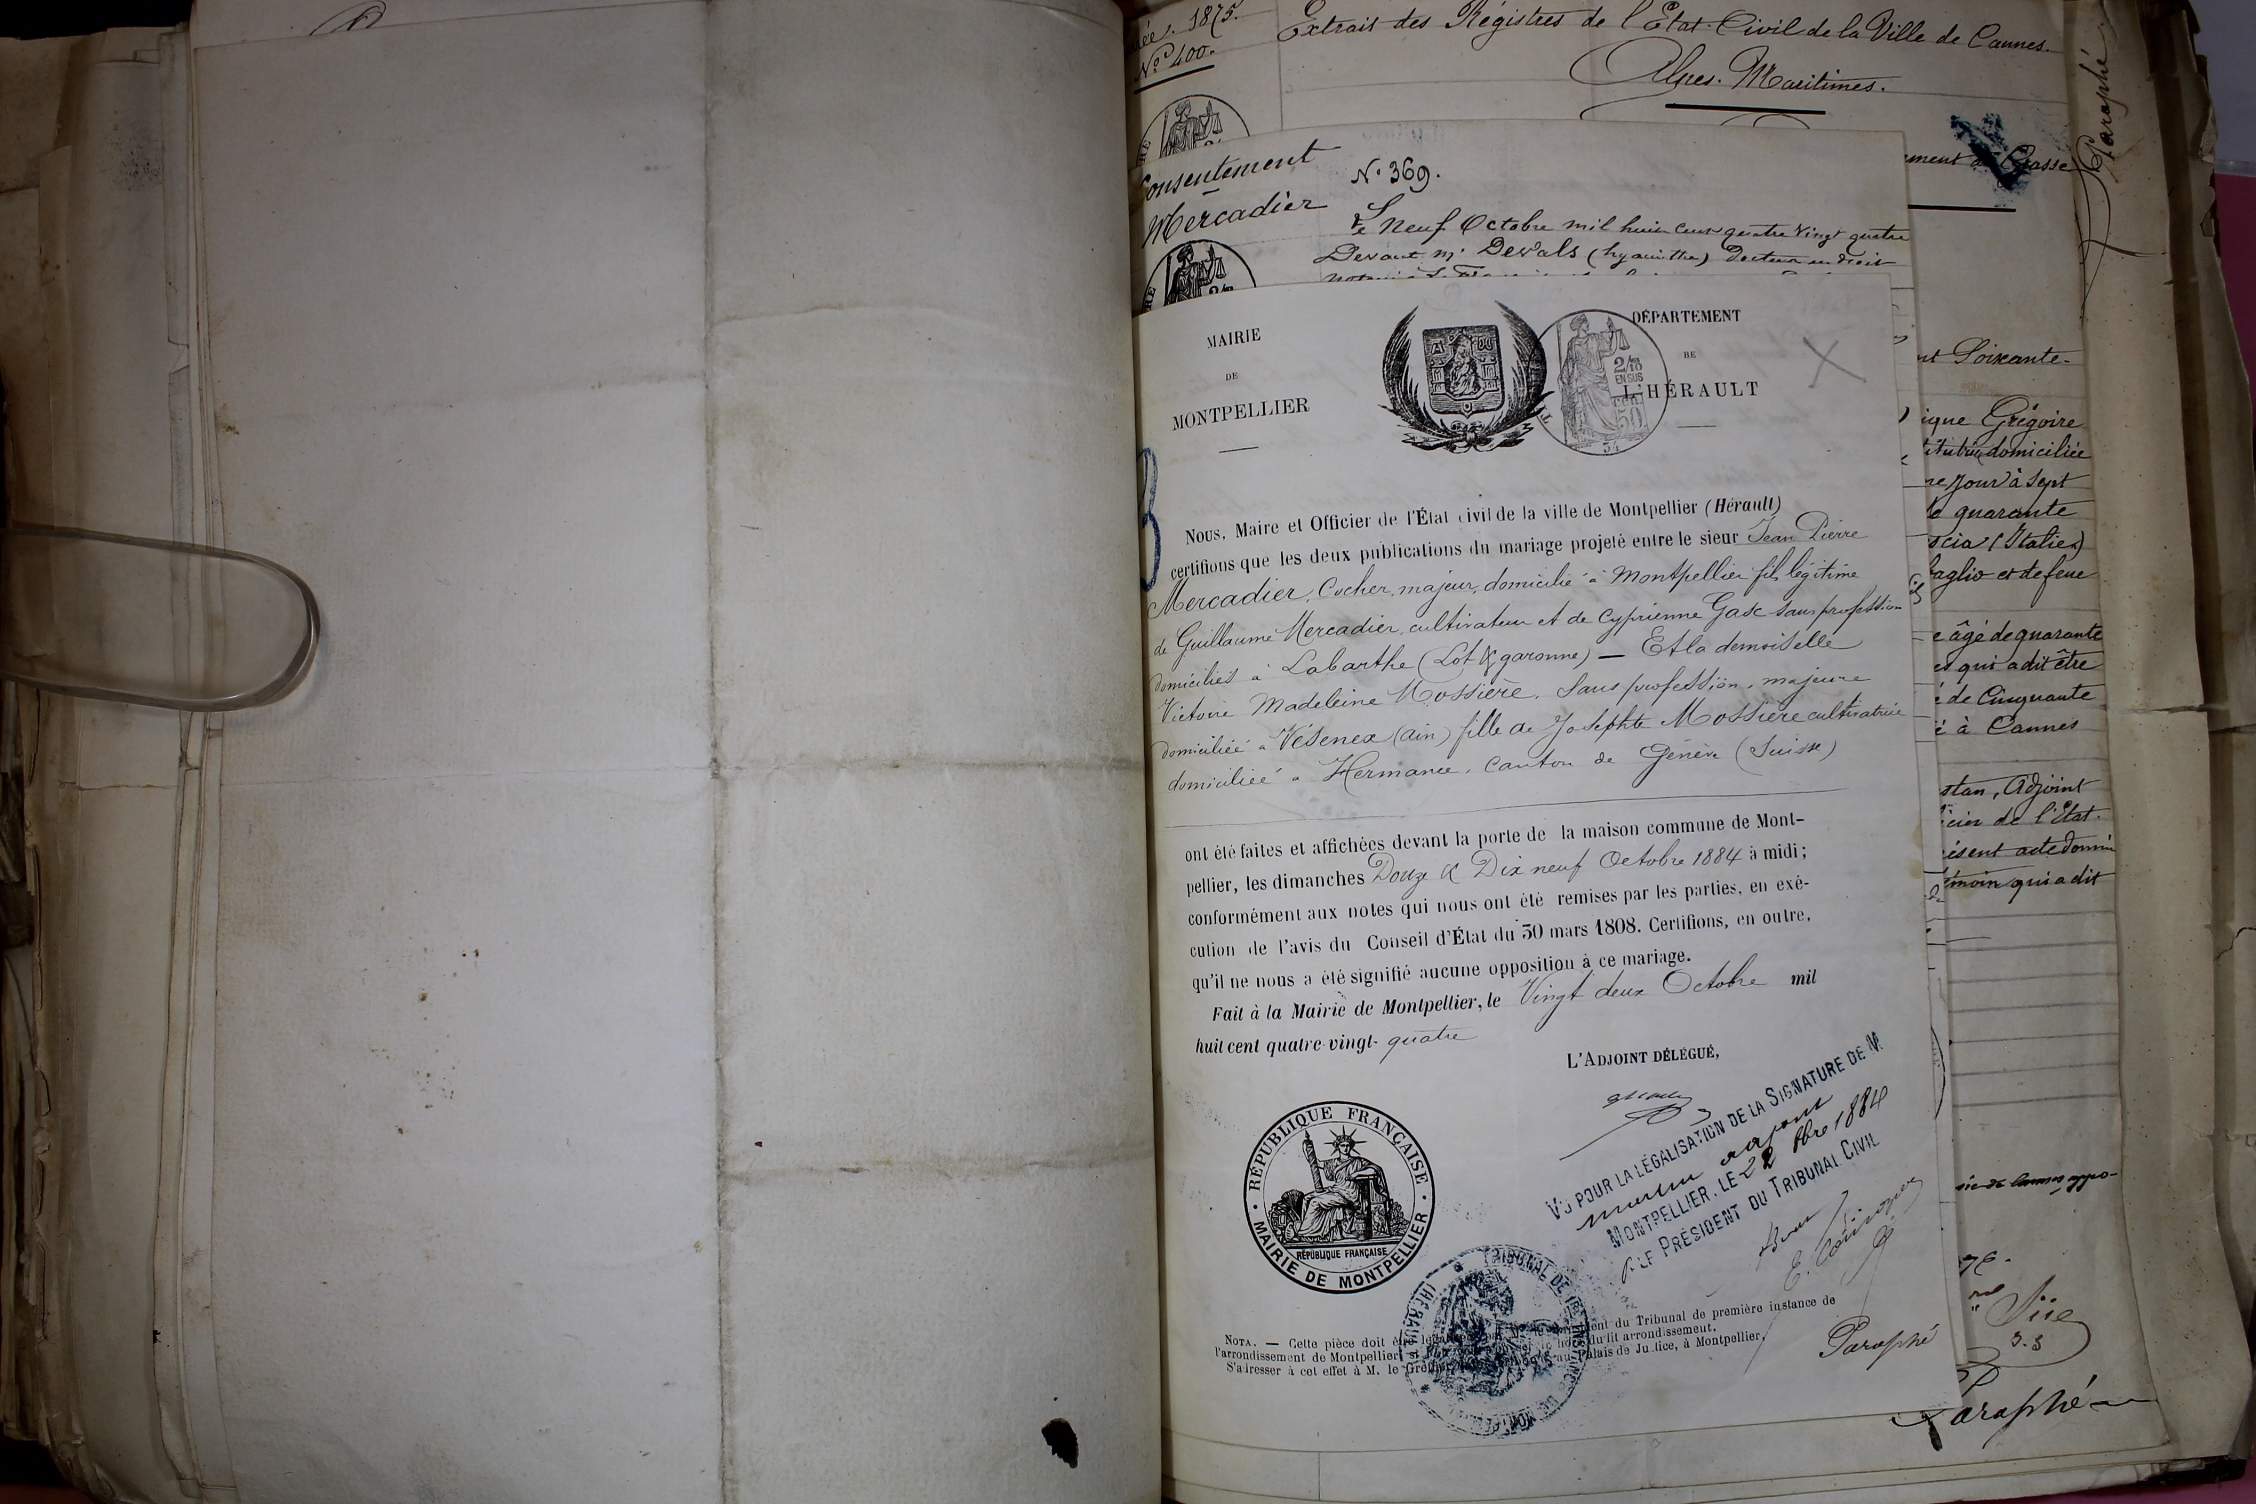 1875.
N.º 400.
Extrait des Régistres de l'État-Civil de la Ville de Cannes.
Alpes-Maritimes.
Paraphé
Grasse
Consentement
Mercadier
N.º 369.
Le Neuf Octobre mil huit cent quatre vingt quatre
Devant Mr Devals (hyacinthe) Docteur en droit
MAIRIE
DE
MONTPELLIER
DÉPARTEMENT
DE
L'HÉRAULT
2/10
EN SUS
50
34
Nous, Maire et Officier de l'État civil de la ville de Montpellier (Hérault)
certifions que les deux publications du mariage projeté entre le sieur Jean Pierre
Mercadier, Cocher, majeur, domicilié à Montpellier fils légitime
de Guillaume Mercadier, cultivateur et de Cyprienne Gasc sans profession
domiciliés à Labarthe (Lot & garonne) — Et la demoiselle
Victoire Madeleine Mossière, Sans profession, majeure
domiciliée à Vesenex (ain) fille de Josephte Mossière cultivatrice
domiciliée à Hermance, Canton de Genève (Suisse)
ont été faites et affichées devant la porte de la maison commune de Mont-
pellier, les dimanches Douze & Dix neuf Octobre 1884 à midi;
conformément aux notes qui nous ont été remises par les parties, en exé-
cution de l'avis du Conseil d'État du 30 mars 1808. Certifions, en outre,
qu'il ne nous a été signifié aucune opposition à ce mariage.
Fait à la Mairie de Montpellier, le Vingt deux Octobre mil
huit cent quatre-vingt-quatre
L'ADJOINT DÉLÉGUÉ,
VU POUR LA LÉGALISATION DE LA SIGNATURE DE M
adjoint
MONTPELLIER, LE 22 8bre 1884
P. LE PRÉSIDENT DU TRIBUNAL CIVIL
RÉPUBLIQUE FRANÇAISE
RÉPUBLIQUE FRANÇAISE
MAIRIE DE MONTPELLIER
TRIBUNAL DE 1RE INSTANCE DE MONTPELLIER (HÉRAULT)
NOTA. — Cette pièce doit être du Tribunal de première instance de
l'arrondissement de Montpellier dudit arrondissement.
S'adresser à cet effet à M. le Greffier au Palais de Justice, à Montpellier.
Paraphé
nt Soixante-
ique Grégoire
domiciliée
re jour à Sept
de quarante
scia (Italie)
baglio et de feue
e âgé de quarante
es qui a dit être
é de Cinquante
é à Cannes
stan, Adjoint
icier de l'État-
ésent acte
émoin qui a dit
Paraphé